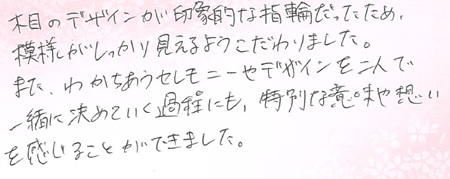 木目のデザインが印象的な指輪だったため、
模様がしっかり見えるようこだわりました。
また、わかちあうセレモニーやデザインを二人で
一緒に決めていく過程にも、特別な意味や想い
を感じることができました。